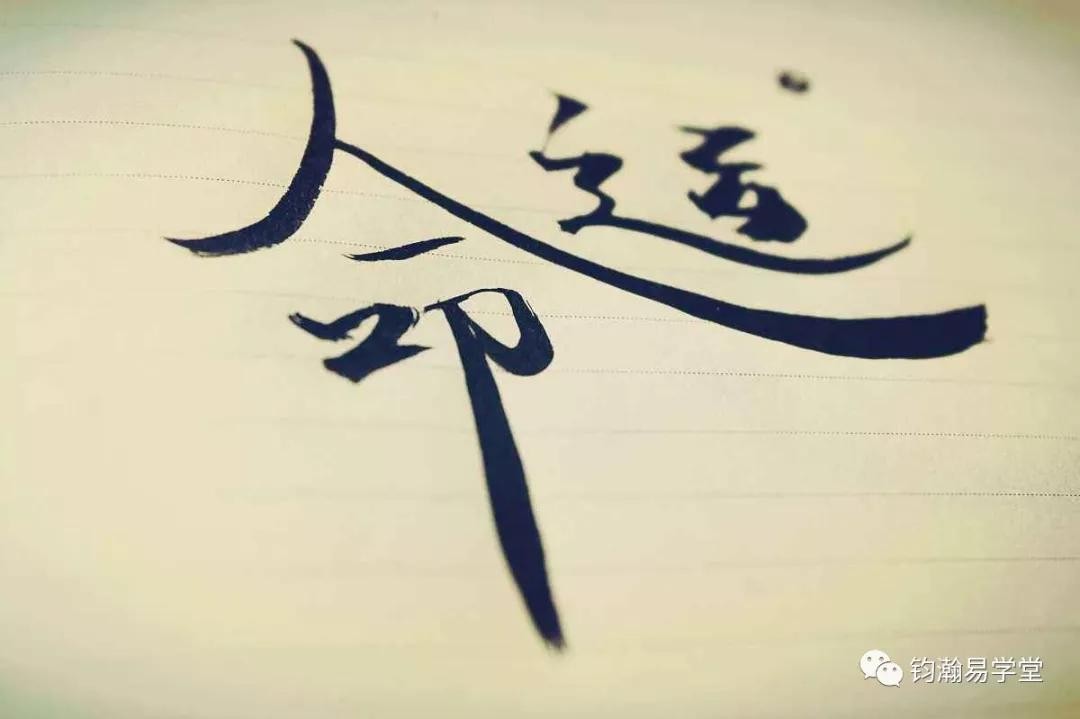 命运
钧瀚易学堂